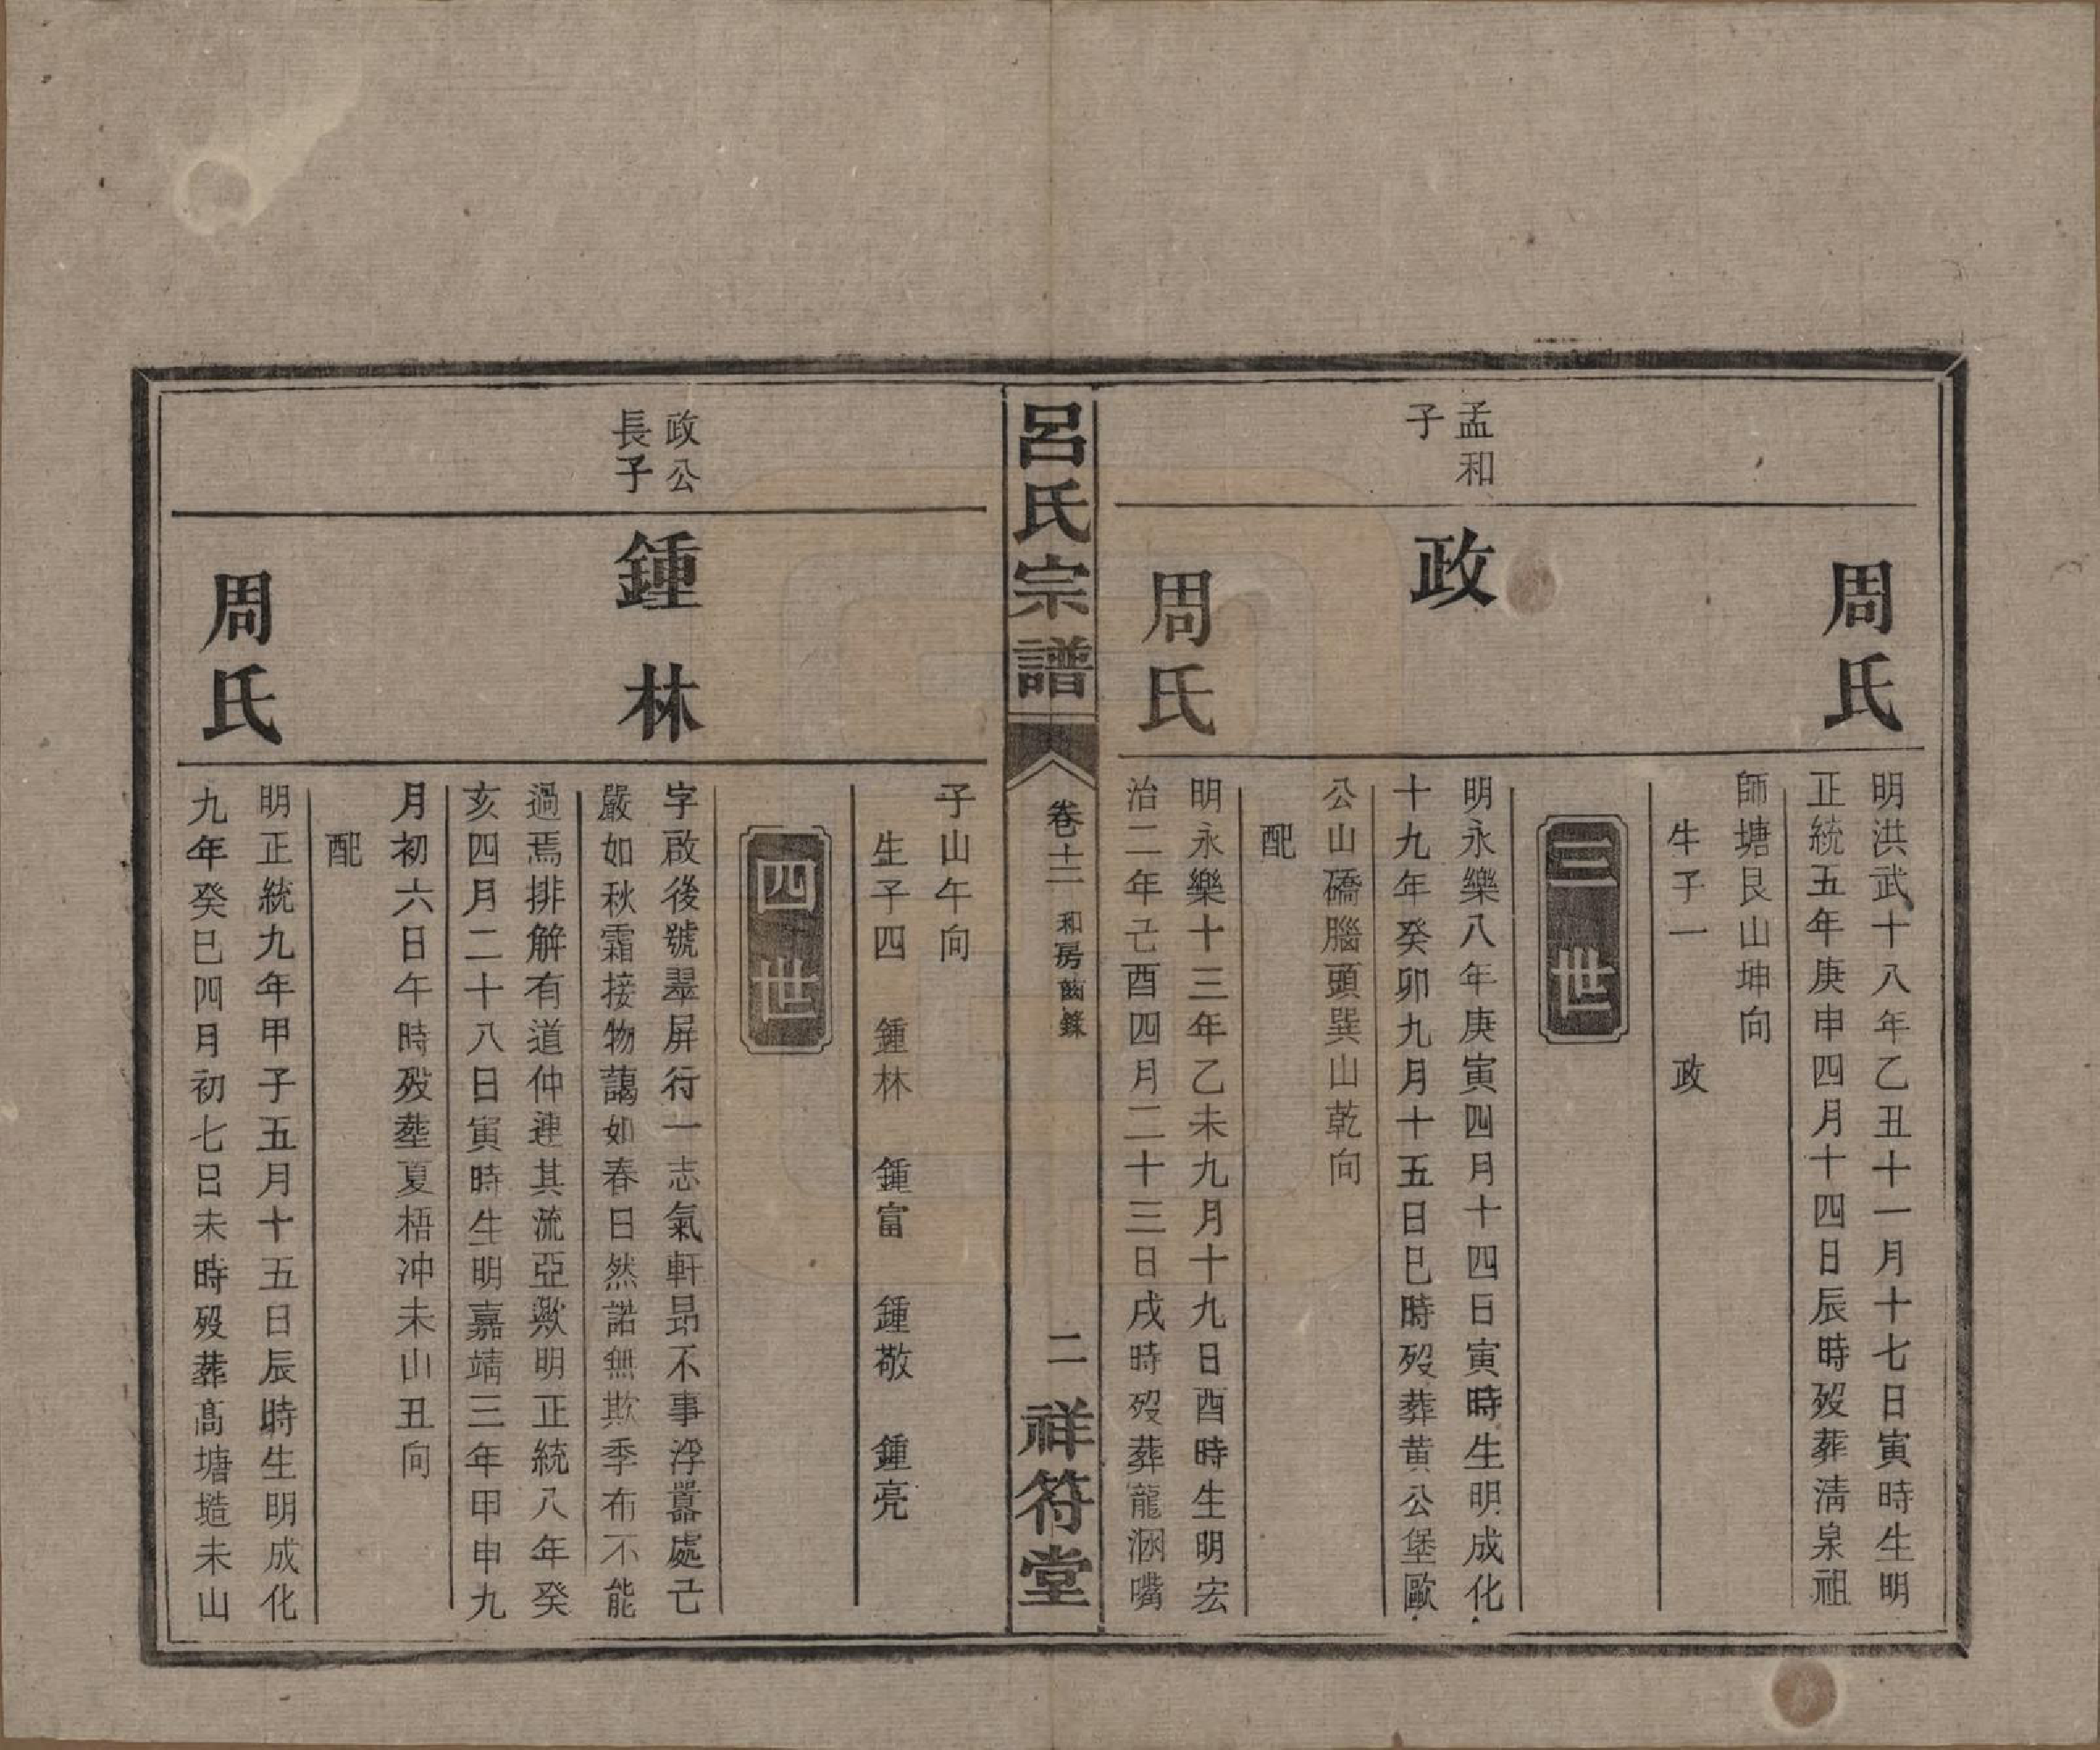 周氏
明洪武十八年乙丑十一月十七日寅時生明
正統五年庚申四月十四日辰時歿葬淸泉祖
師塘艮山坤向
生子一　政
三世
孟和
子
政
明永樂八年庚寅四月十四日寅時生明成化
十九年癸卯九月十五日巳時歿葬黄公堡歐
公山礄腦頭巽山乾向
配
周氏
明永樂十三年乙未九月十九日酉時生明宏
治二年己酉四月二十三日戌時歿葬龍涵嘴
呂氏宗譜
卷十二
和房齒錄
二
祥符堂
子山午向
生子四　鍾林　鍾富　鍾敬　鍾亮
四世
政公
長子
鍾林
字啟後號翠屏行一志氣軒昂不事浮囂處己
嚴如秋霜接物藹如春日然諾無欺季布不能
過焉排解有道仲連其流亞歟明正統八年癸
亥四月二十八日寅時生明嘉靖三年甲申九
月初六日午時歿塟夏梧冲未山丑向
配
周氏
明正統九年甲子五月十五日辰時生明成化
九年癸巳四月初七日未時歿葬髙塘塏未山